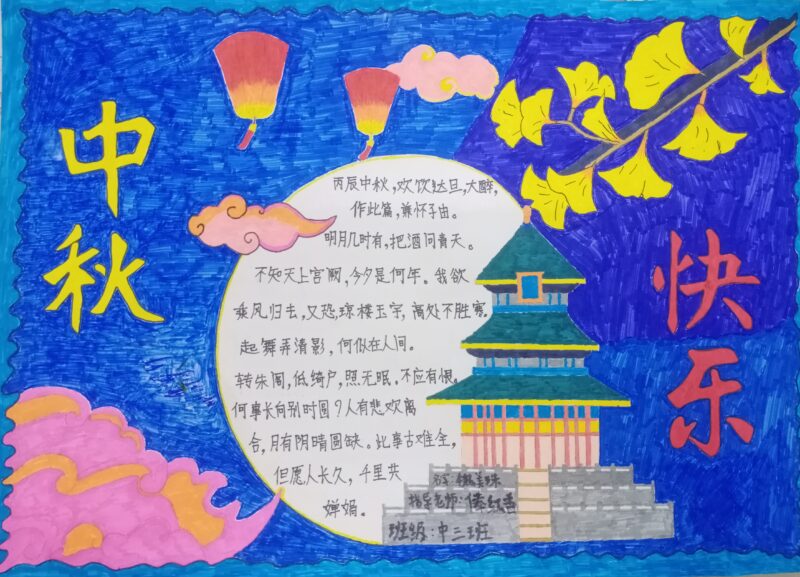 中秋
快乐
丙辰中秋,欢饮达旦,大醉,
作此篇,兼怀子由。
明月几时有,把酒问青天。
不知天上宫阙,今夕是何年。我欲
乘风归去,又恐,琼楼玉宇,高处不胜寒。
起舞弄清影,何似在人间。
转朱阁,低绮户,照无眠。不应有恨。
何事长向别时圆?人有悲欢离
合,月有阴晴圆缺。此事古难全,
但愿人长久,千里共
婵娟。
指导老师:
班级:中三班